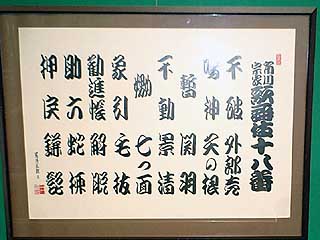 市川宗家 歌舞伎十八番
不破 外郎売
鳴神 矢の根
暫 関羽
不動 景清
嫐 七つ面
象引 毛抜
勧進帳 解脱
助六 蛇柳
押戻 鎌髭